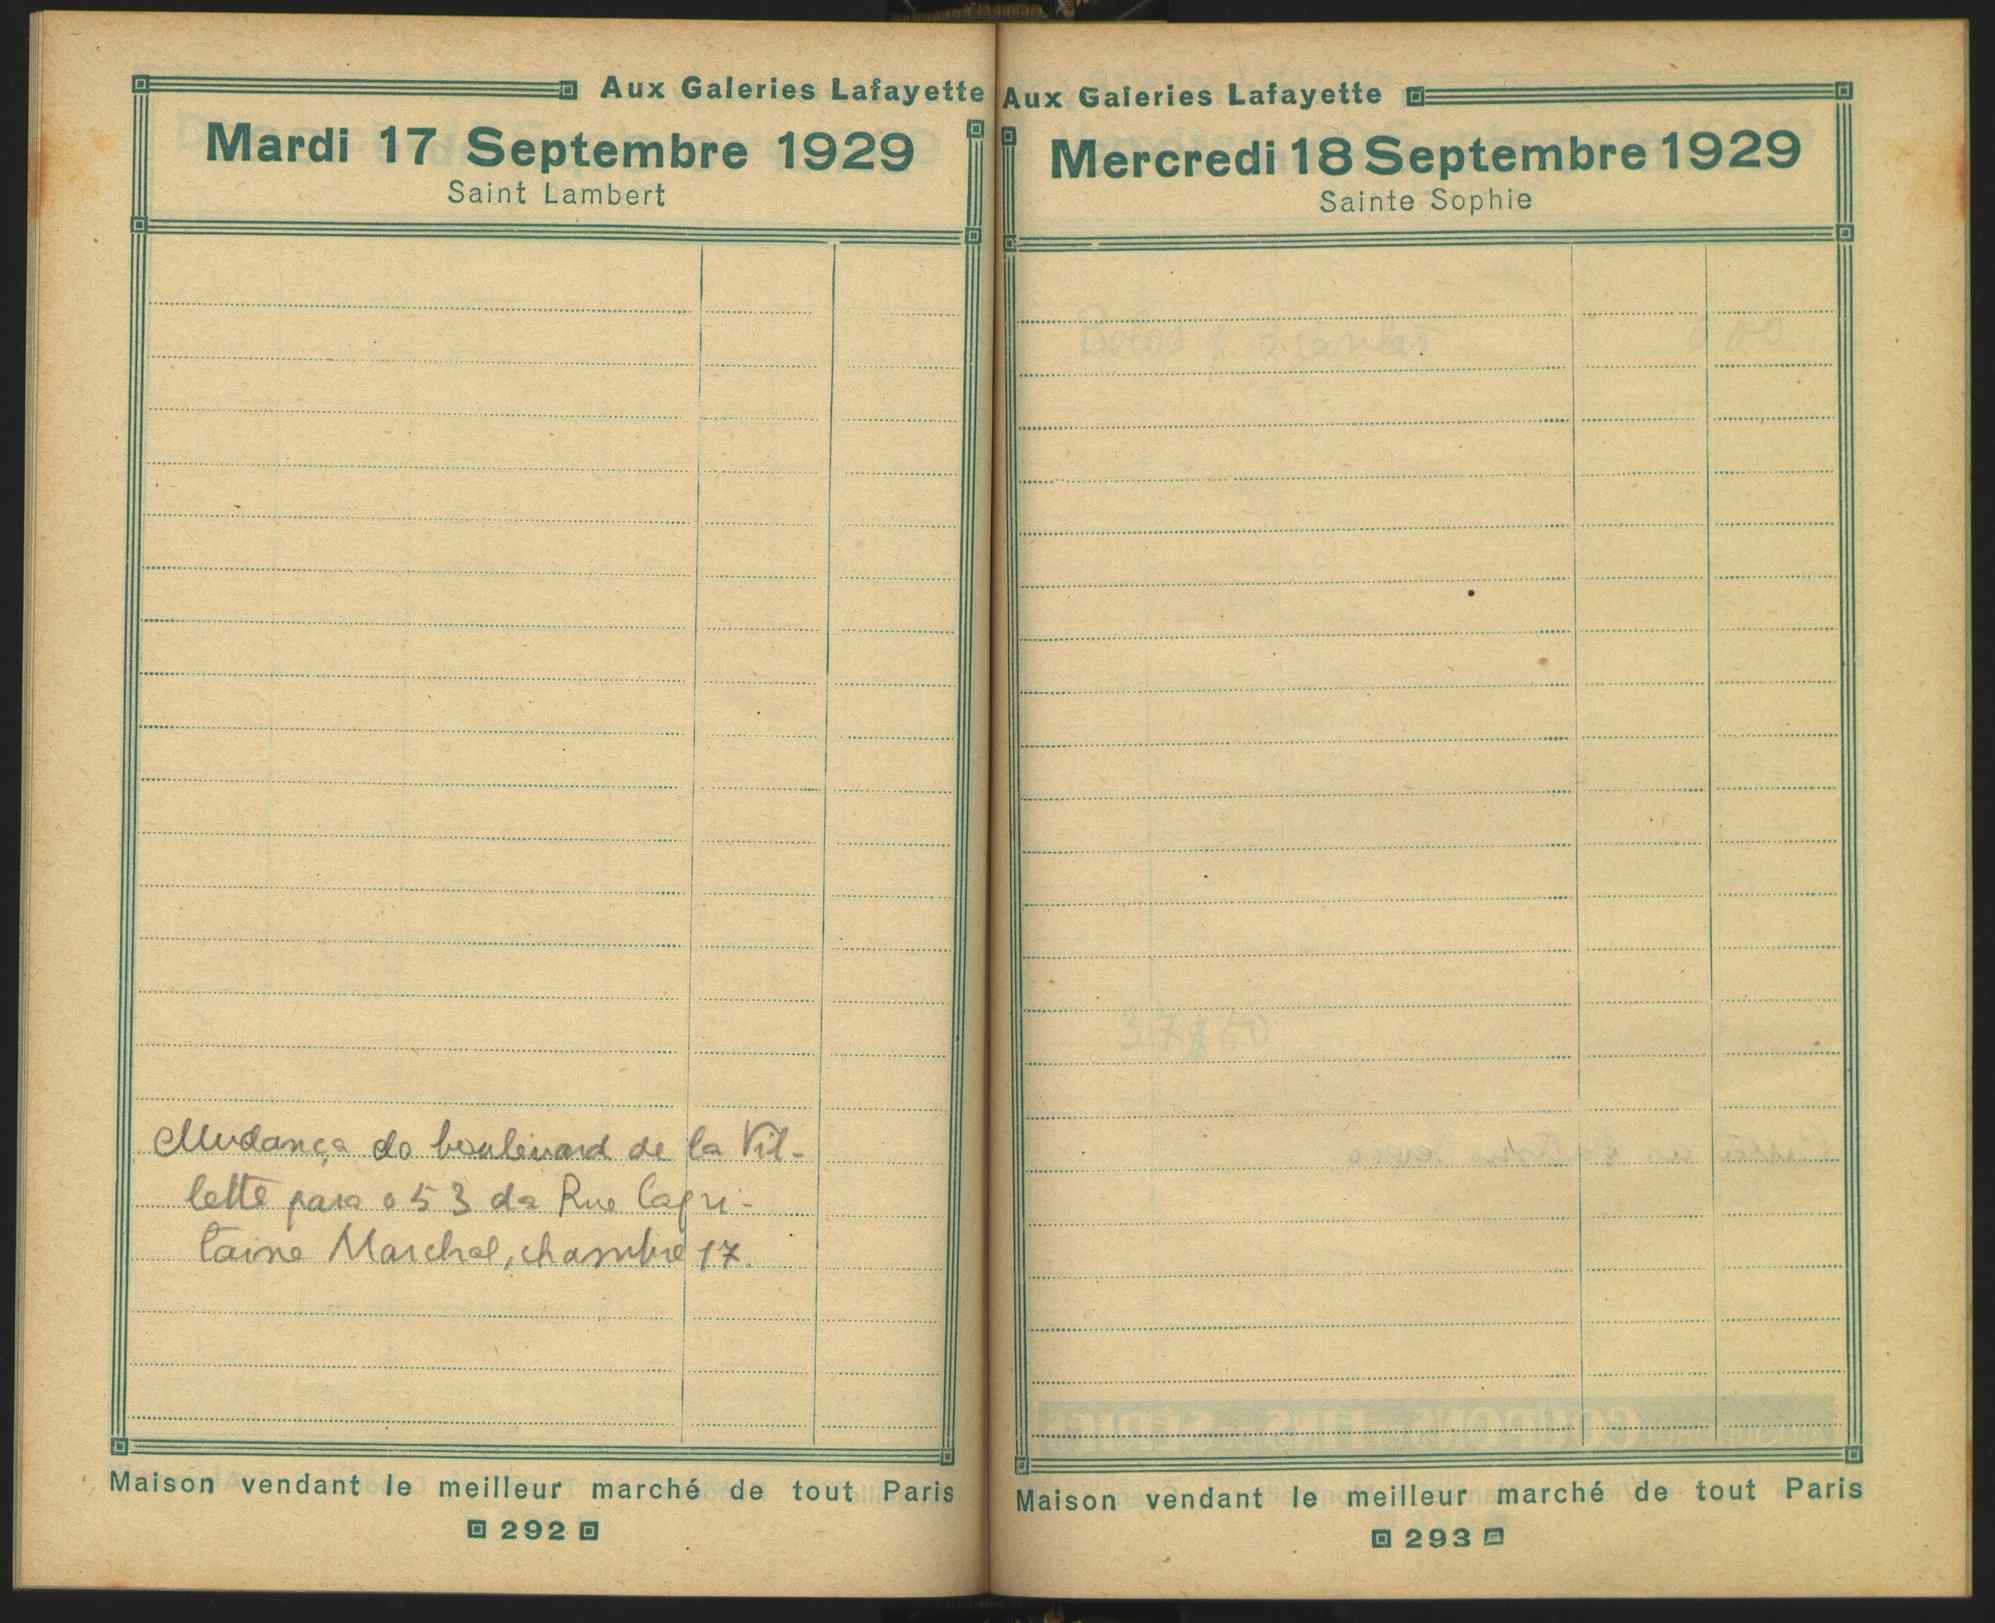 Aux Galeries Lafayette
Mardi 17 Septembre 1929
Saint Lambert
Mudança do boulevard de la Vil-
lette para o 53 da Rue Capi-
taine Marchal, chambre 17.
Maison vendant le meilleur marché de tout Paris
292
Aux Galeries Lafayette
Mercredi 18 Septembre 1929
Sainte Sophie
Maison vendant le meilleur marché de tout Paris
293